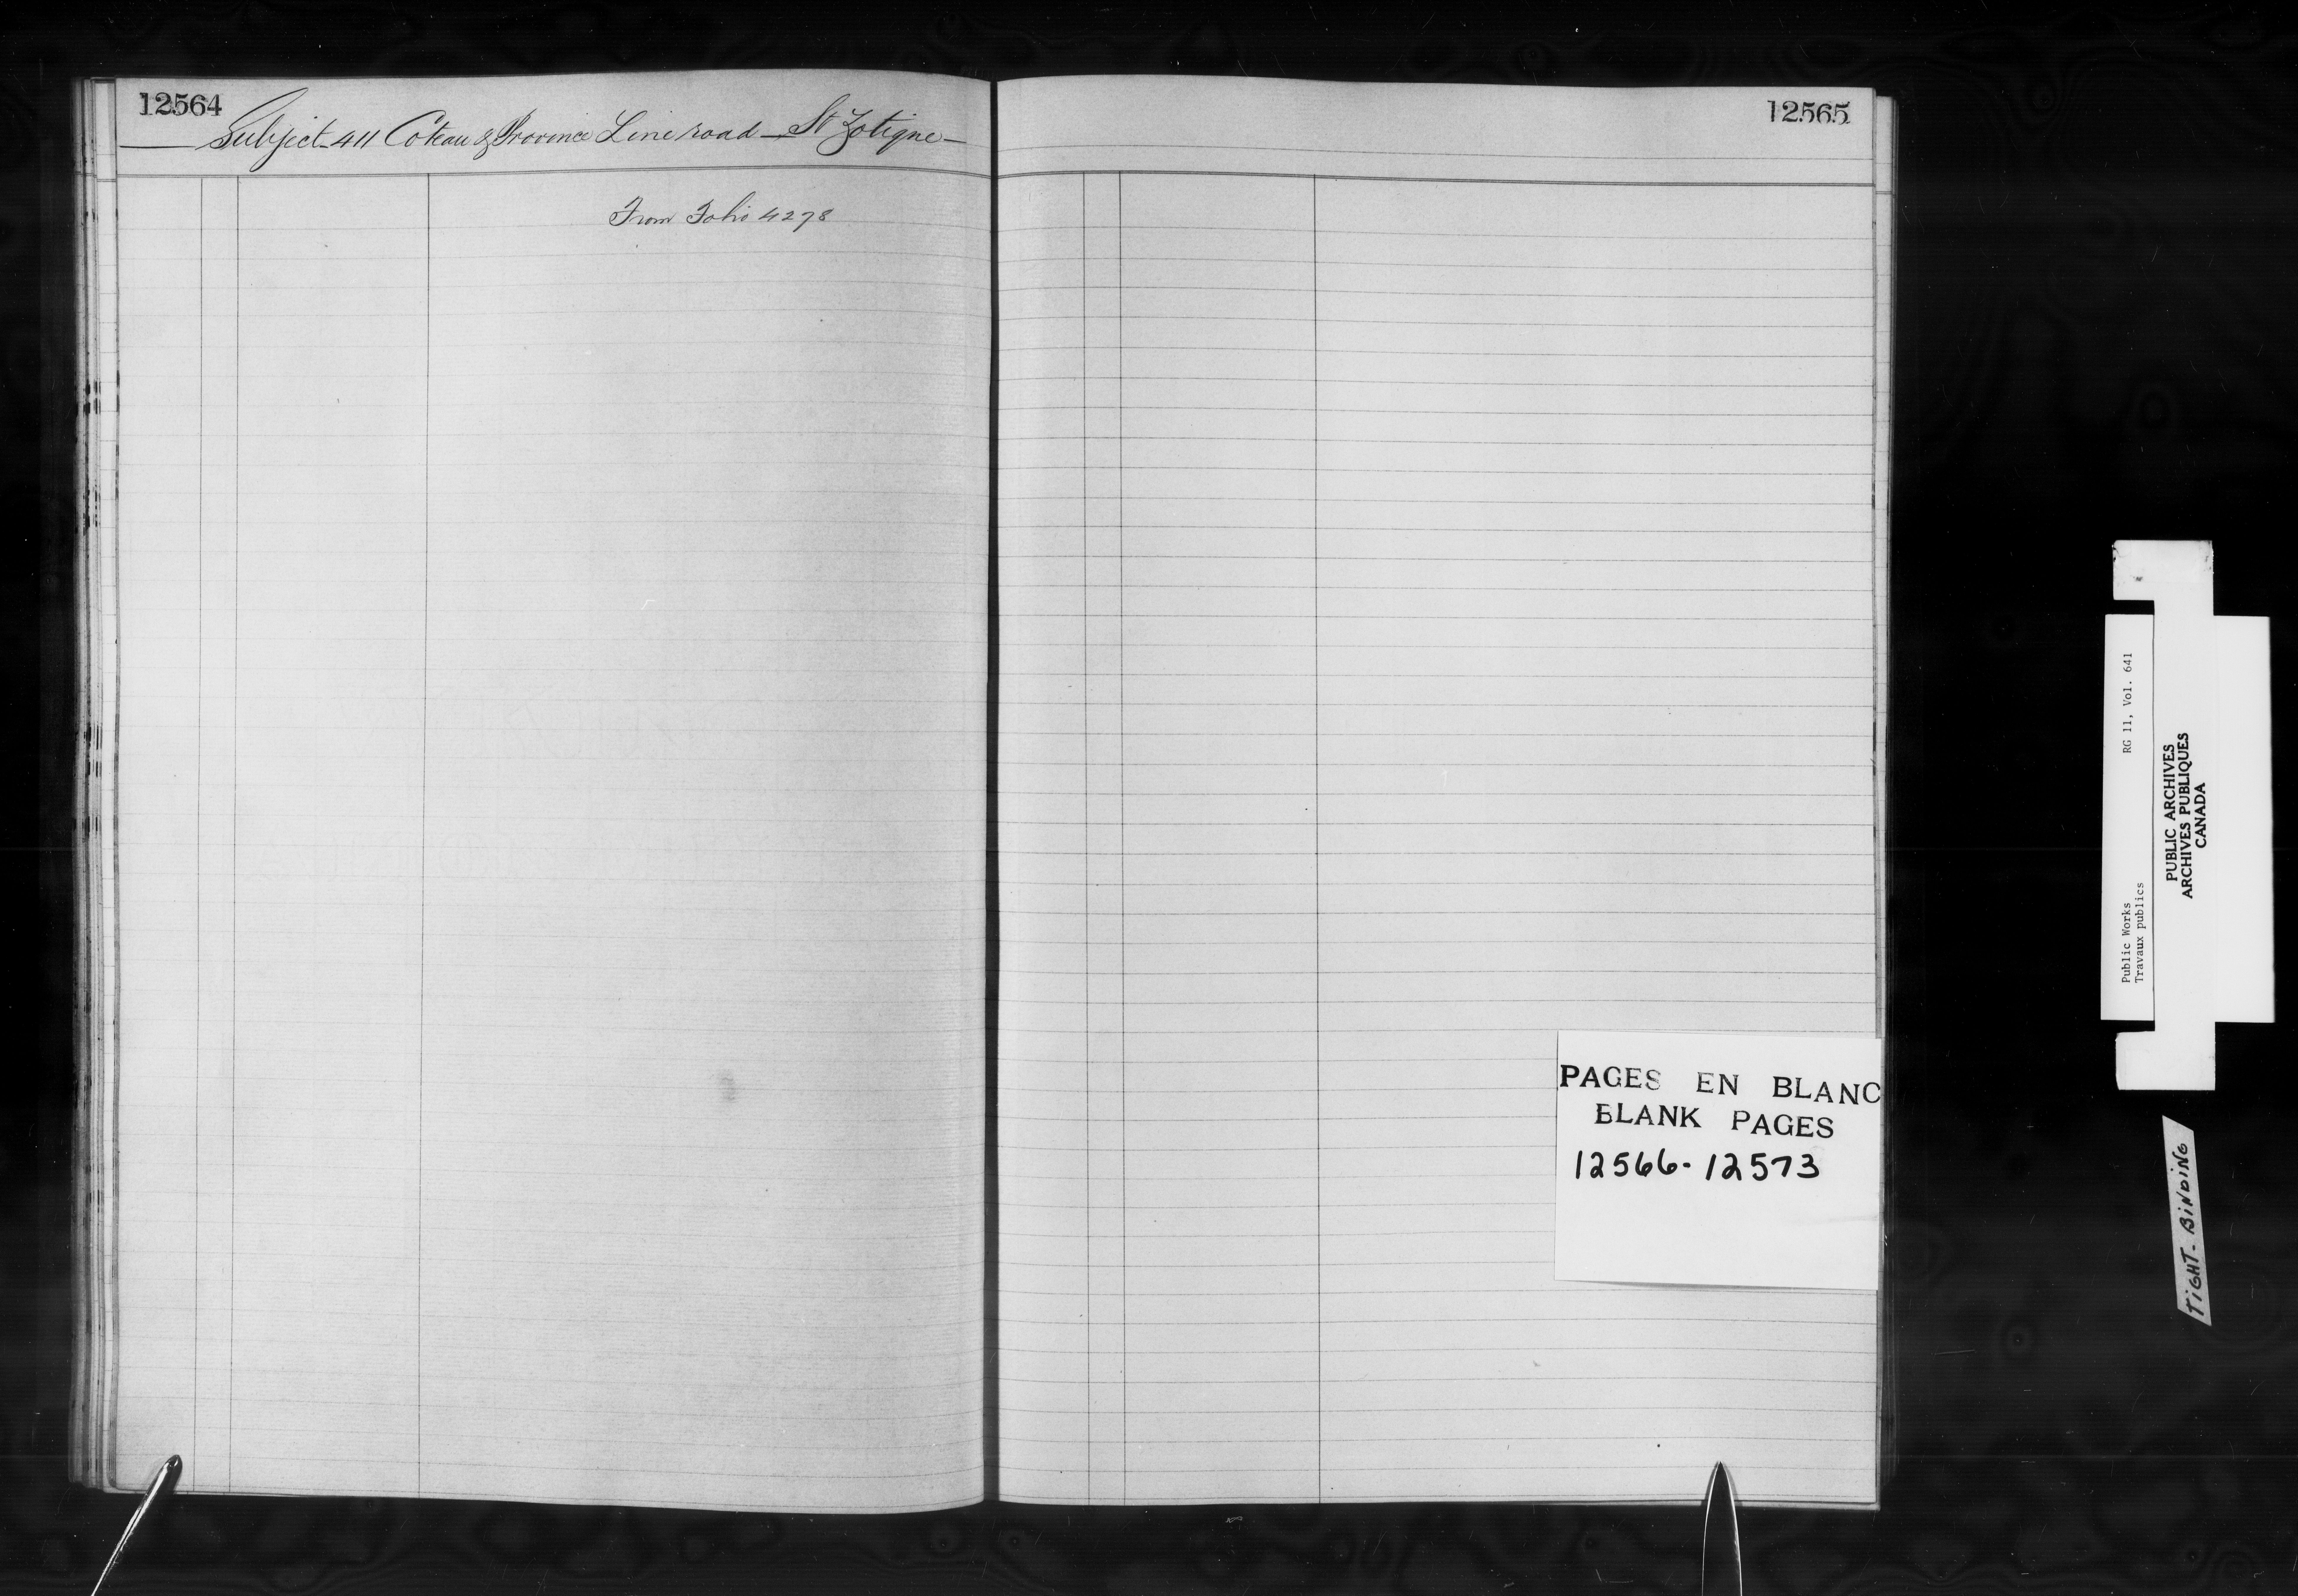 12564
Subject 411 Coteau & Province Line road — St Zotique —
From Folio 4278
12565
PAGES EN BLANC
BLANK PAGES
12566-12573
Public Works RG 11, Vol. 641
Travaux publics
PUBLIC ARCHIVES
ARCHIVES PUBLIQUES
CANADA
TIGHT-BINDING